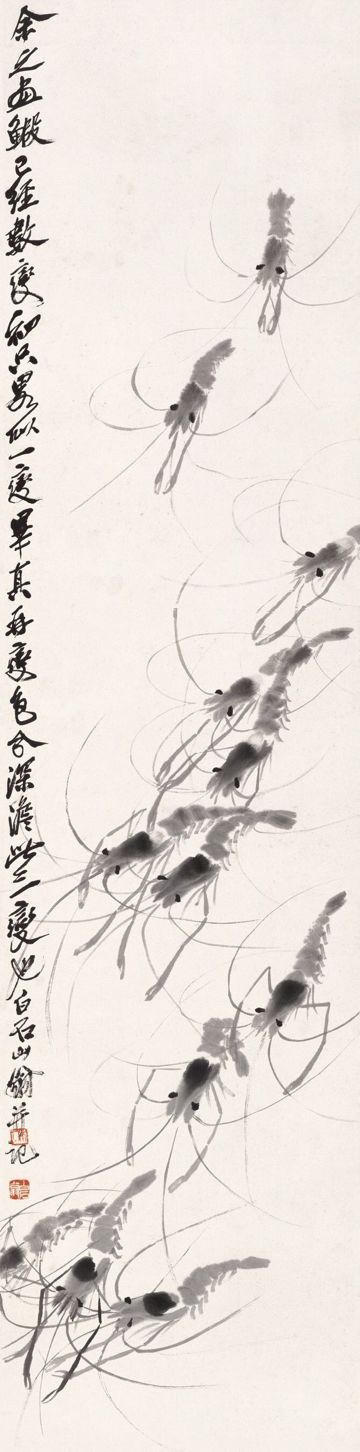 余之畫蝦已經數變初只略似一變畢真再變色分深澹此三變也白石山翁并記